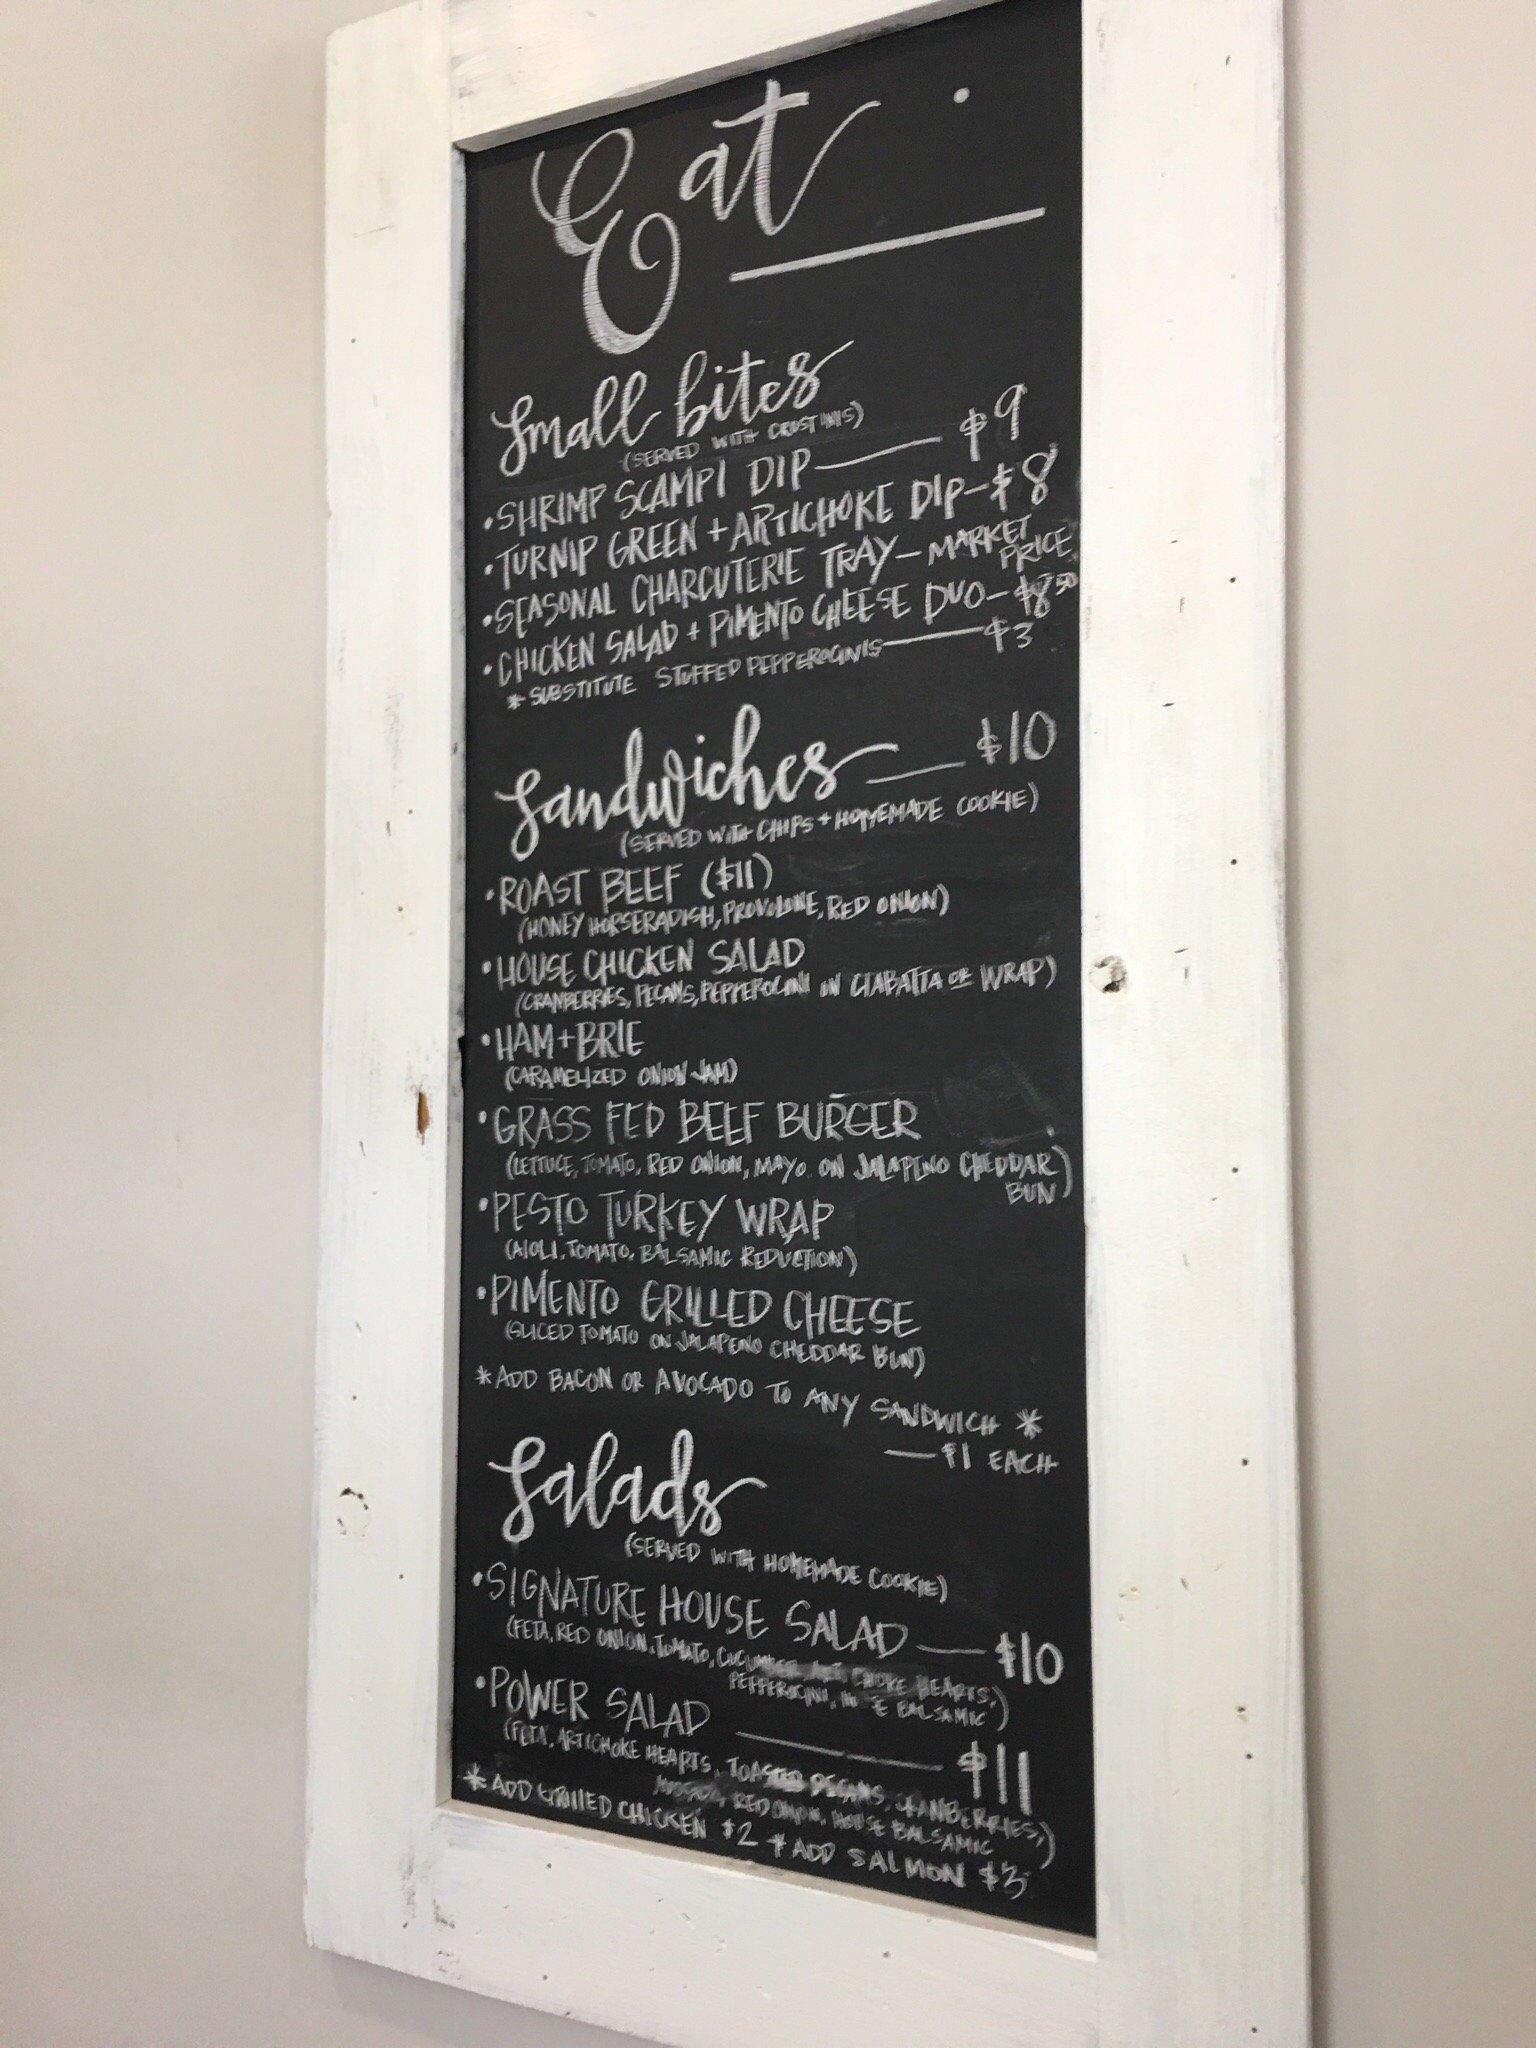 Eat.
Small bites
(SERVED WITH CROSTINIS)
• SHRIMP SCAMPI DIP — $9
• TURNIP GREEN + ARTICHOKE DIP - $8
• SEASONAL CHARCUTERIE TRAY - MARKET PRICE
• CHICKEN SALAD + PIMENTO CHEESE DUO - $8.50
* SUBSTITUTE STUFFED PEPPEROCINIS — $3
Sandwiches — $10
(SERVED WITH CHIPS + HOMEMADE COOKIE)
• ROAST BEEF ($11)
(HONEY HORSERADISH, PROVOLONE, RED ONION)
• HOUSE CHICKEN SALAD
(CRANBERRIES, PECANS, PEPPEROCINI ON CIABATTA OR WRAP)
• HAM + BRIE
(CARAMELIZED ONION JAM)
• GRASS FED BEEF BURGER
(LETTUCE, TOMATO, RED ONION, MAYO ON JALAPENO CHEDDAR
BUN)
• PESTO TURKEY WRAP
(AIOLI, TOMATO, BALSAMIC REDUCTION)
• PIMENTO GRILLED CHEESE
(SLICED TOMATO ON JALAPENO CHEDDAR BUN)
* ADD BACON OR AVOCADO TO ANY SANDWICH *
— $1 EACH
Salads
(SERVED WITH HOMEMADE COOKIE)
• SIGNATURE HOUSE SALAD — $10
(FETA, RED ONION, TOMATO, CUCUMBER, CHOKE HEARTS,
PEPPEROCINI, BALSAMIC)
• POWER SALAD — $11
(FETA, ARTICHOKE HEARTS, TOASTED PECANS, CRANBERRIES,
RED ONION, HOUSE BALSAMIC)
* ADD GRILLED CHICKEN $2 * ADD SALMON $3